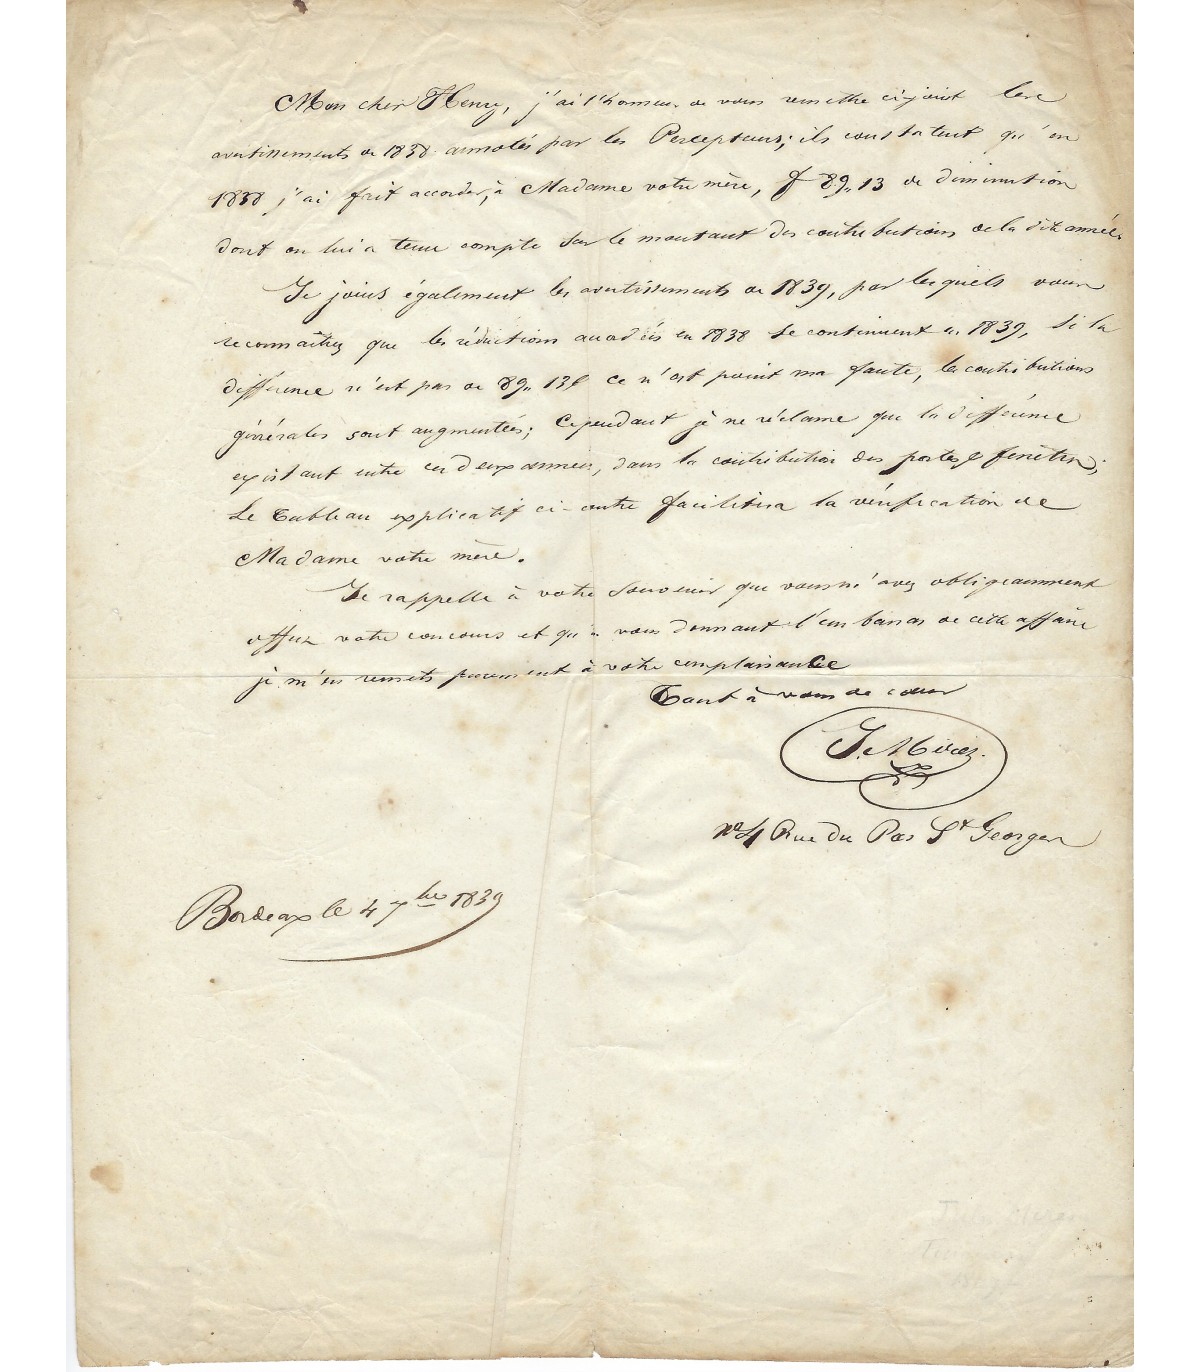 Mon cher Henry, j'ai l'honneur de vous remettre ci-joint les
avertissements de 1838 annotés par les Percepteurs; ils constatent qu'en
1838 j'ai fait accorder, à Madame votre mère, f 89,, 13 de diminution
dont on lui a tenu compte sur le montant des contributions de la dite année.
Je joins également les avertissements de 1839, par lesquels vous
reconnaîtrez que les réductions accordées en 1838 se continuent en 1839, si la
différence n'est pas de 89,, 13 ce n'est point ma faute, les contributions
générales sont augmentées; Cependant je ne réclame que la différence
existant entre ces deux années, dans la contribution des portes & fenêtres;
Le Tableau explicatif ci-contre facilitera la vérification de
Madame votre mère.
Je rappelle à votre souvenir que vous m'avez obligeamment
offert votre concours et qu'en vous donnant l'embarras de cette affaire
je m'en remets purement à votre complaisance
Tout à vous de cœur
J. Mirès
N° 4 Rue du Pas St Georges
Bordeaux le 4 7bre 1839